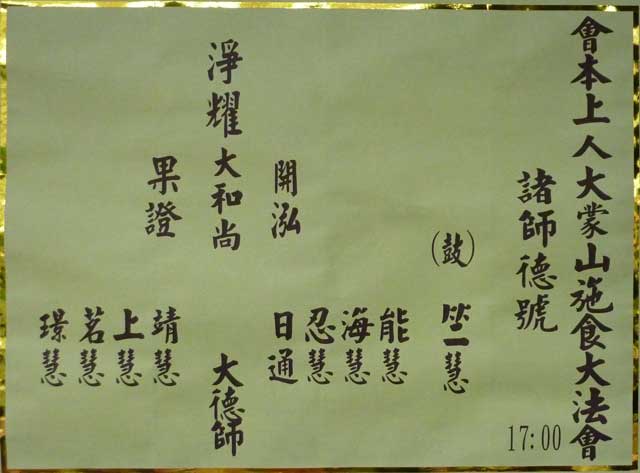 會本上人大蒙山施食大法會
諸師德號
17:00
(鼓)
慧
能慧
海慧
忍慧
開泓
日通
淨耀大和尚
大德師
果證
靖慧
上慧
茗慧
璟慧